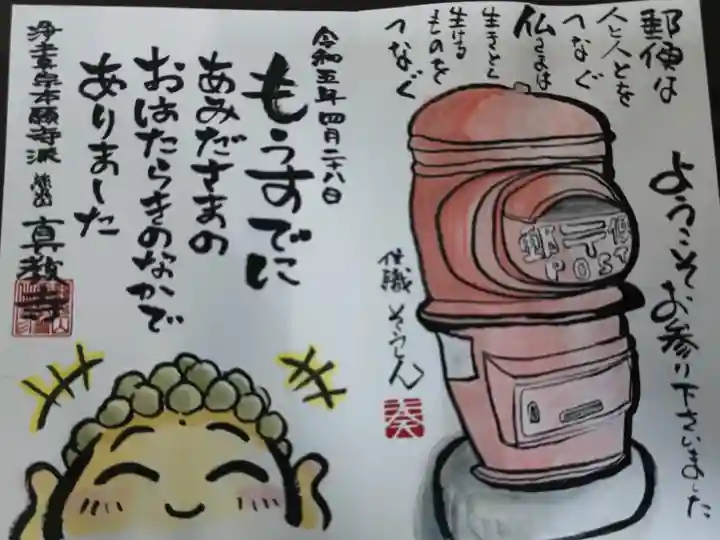 ようこそお参り下さいました
郵便は
人と人とを
つなぐ
仏さまは
生きとし
生ける
ものを
つなぐ
郵〒便
POST
住職 そうしん
奏
令和五年四月二十八日
もうすでに
あみださまの
おはたらきのなかで
ありました
浄土真宗本願寺派 真教寺